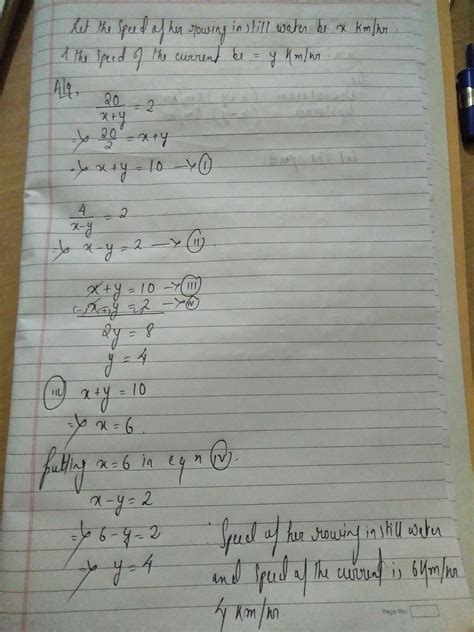 Let the speed of her rowing in still water be x Km/hr.
& the speed of the current be = y Km/hr.
A/q,
20/(x+y) = 2
=> 20/2 = x+y
=> x+y = 10 -> (I)
4/(x-y) = 2
=> x-y = 2 -> (II)
x+y = 10 -> (III)
(-) x (-) y = 2 -> (IV)
2y = 8
y = 4
(III) x+y = 10
=> x = 6.
putting x=6 in eqn (IV).
x-y = 2
=> 6-y = 2
=> y = 4
∴ Speed of her rowing in still water
and speed of the current is 6Km/hr
4 Km/hr
Page No.